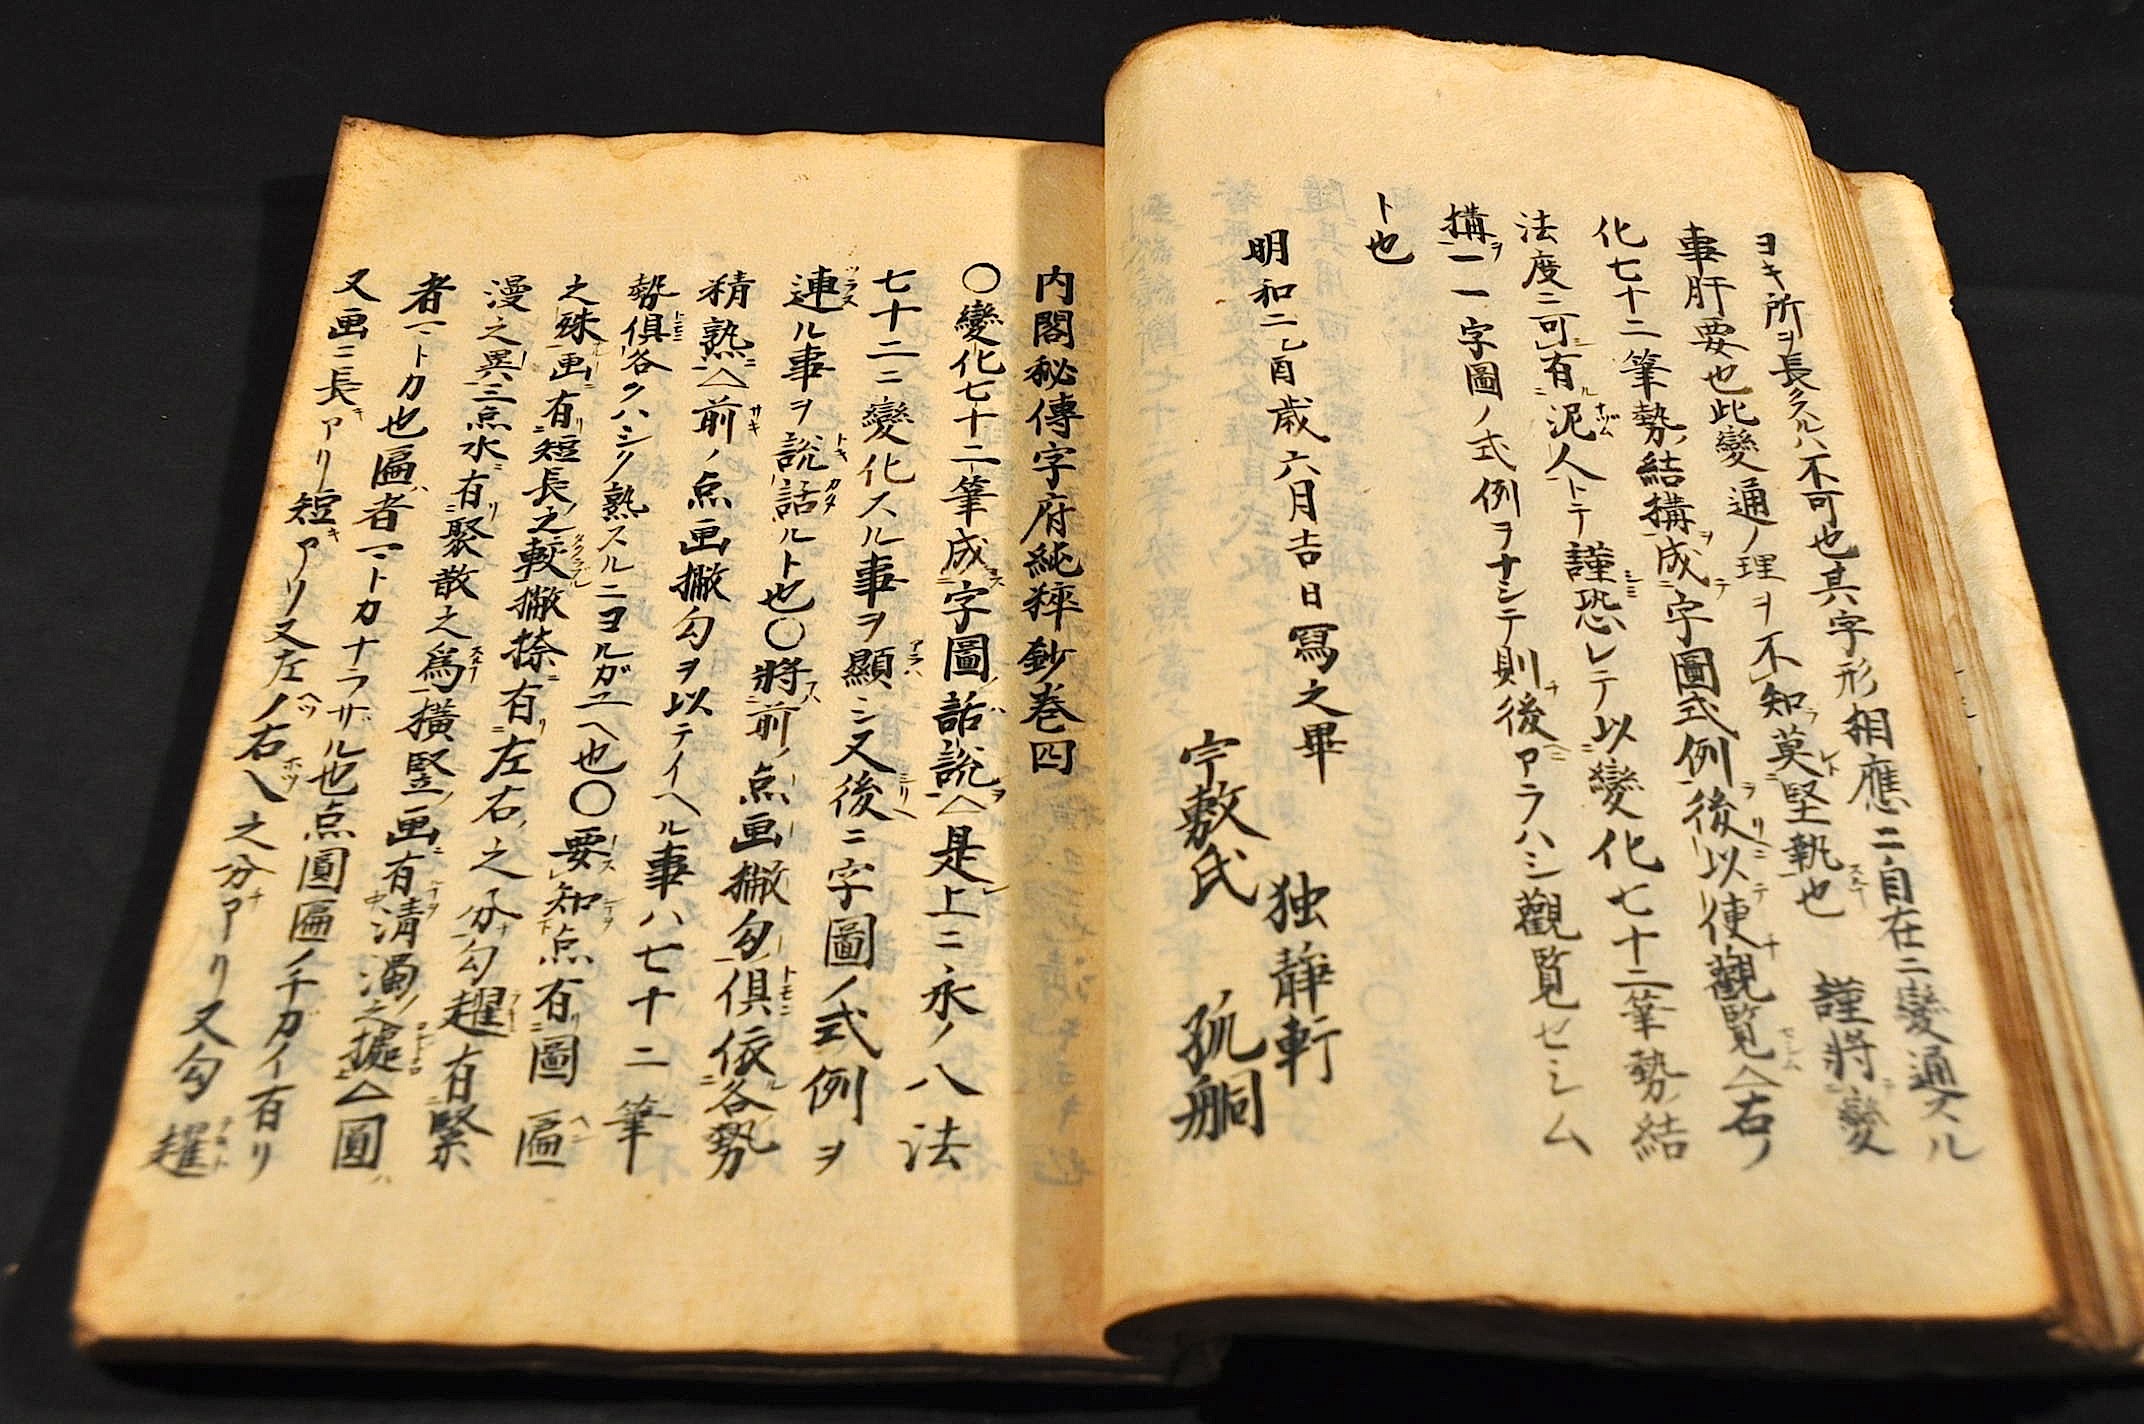 ヨキ所ヲ長クスルハ不可也其字形相應ニ自在ニ變通スル
事肝要也此變通ノ理ヲ不知莫堅執也 謹將變
化七十二筆勢結構成字圖式例後以便觀覧△右ノ
法度ニ可有泥人トテ謹恐レテ以變化七十二筆勢結
構一一字圖ノ式例ヲナシテ則後アラハシ觀覧セシム
ト也
明和二乙酉歳六月吉日寫之畢
独静軒
宇敷氏 孤舸
内閣秘傳字府純粹鈔巻四
〇變化七十二筆成字圖話説△是上ニ永ノ八法
七十二ニ變化スル事ヲ顯シ又後ニ字圖ノ式例ヲ
連ル事ヲ説話ルト也〇將前ノ点画撇勾俱依各勢
精熟△前ノ点画撇勾ヲ以テイヘル事ハ七十二筆
勢俱各クハシク熟スルニヨルガユヘ也〇要知点有圖匾
之殊画有短長之較撇捺有左右之分勾趯有緊
漫之異三点水有聚散之爲橫竪画有清濁之據△圓
者マトカ也匾者マトカナラザル也点圓匾ノチガイ有リ
又画ニ長アリ短アリ又左ノ右乀之分アリ又勾趯